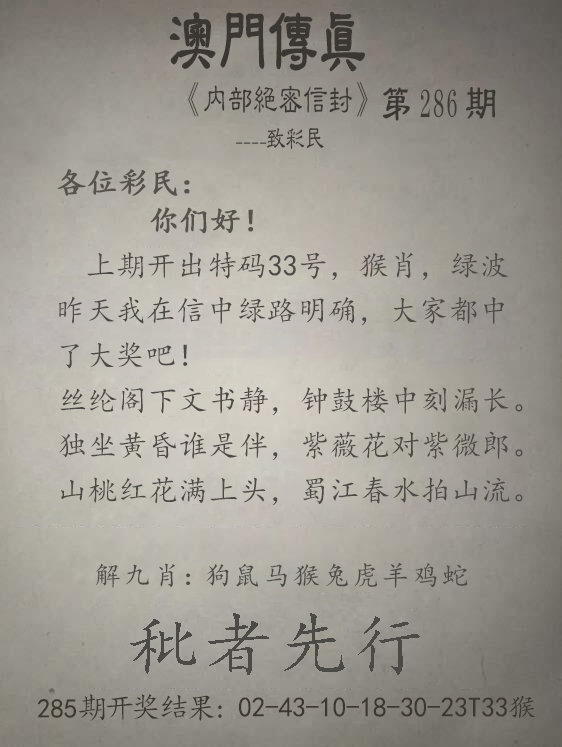 澳門傳眞
《内部絕密信封》第286期
----致彩民
各位彩民：
你们好！
上期开出特码33号，猴肖，绿波
昨天我在信中绿路明确，大家都中
了大奖吧！
丝纶阁下文书静，钟鼓楼中刻漏长。
独坐黄昏谁是伴，紫薇花对紫微郎。
山桃红花满上头，蜀江春水拍山流。
解九肖：狗鼠马猴兔虎羊鸡蛇
秕者先行
285期开奖结果：02-43-10-18-30-23T33猴